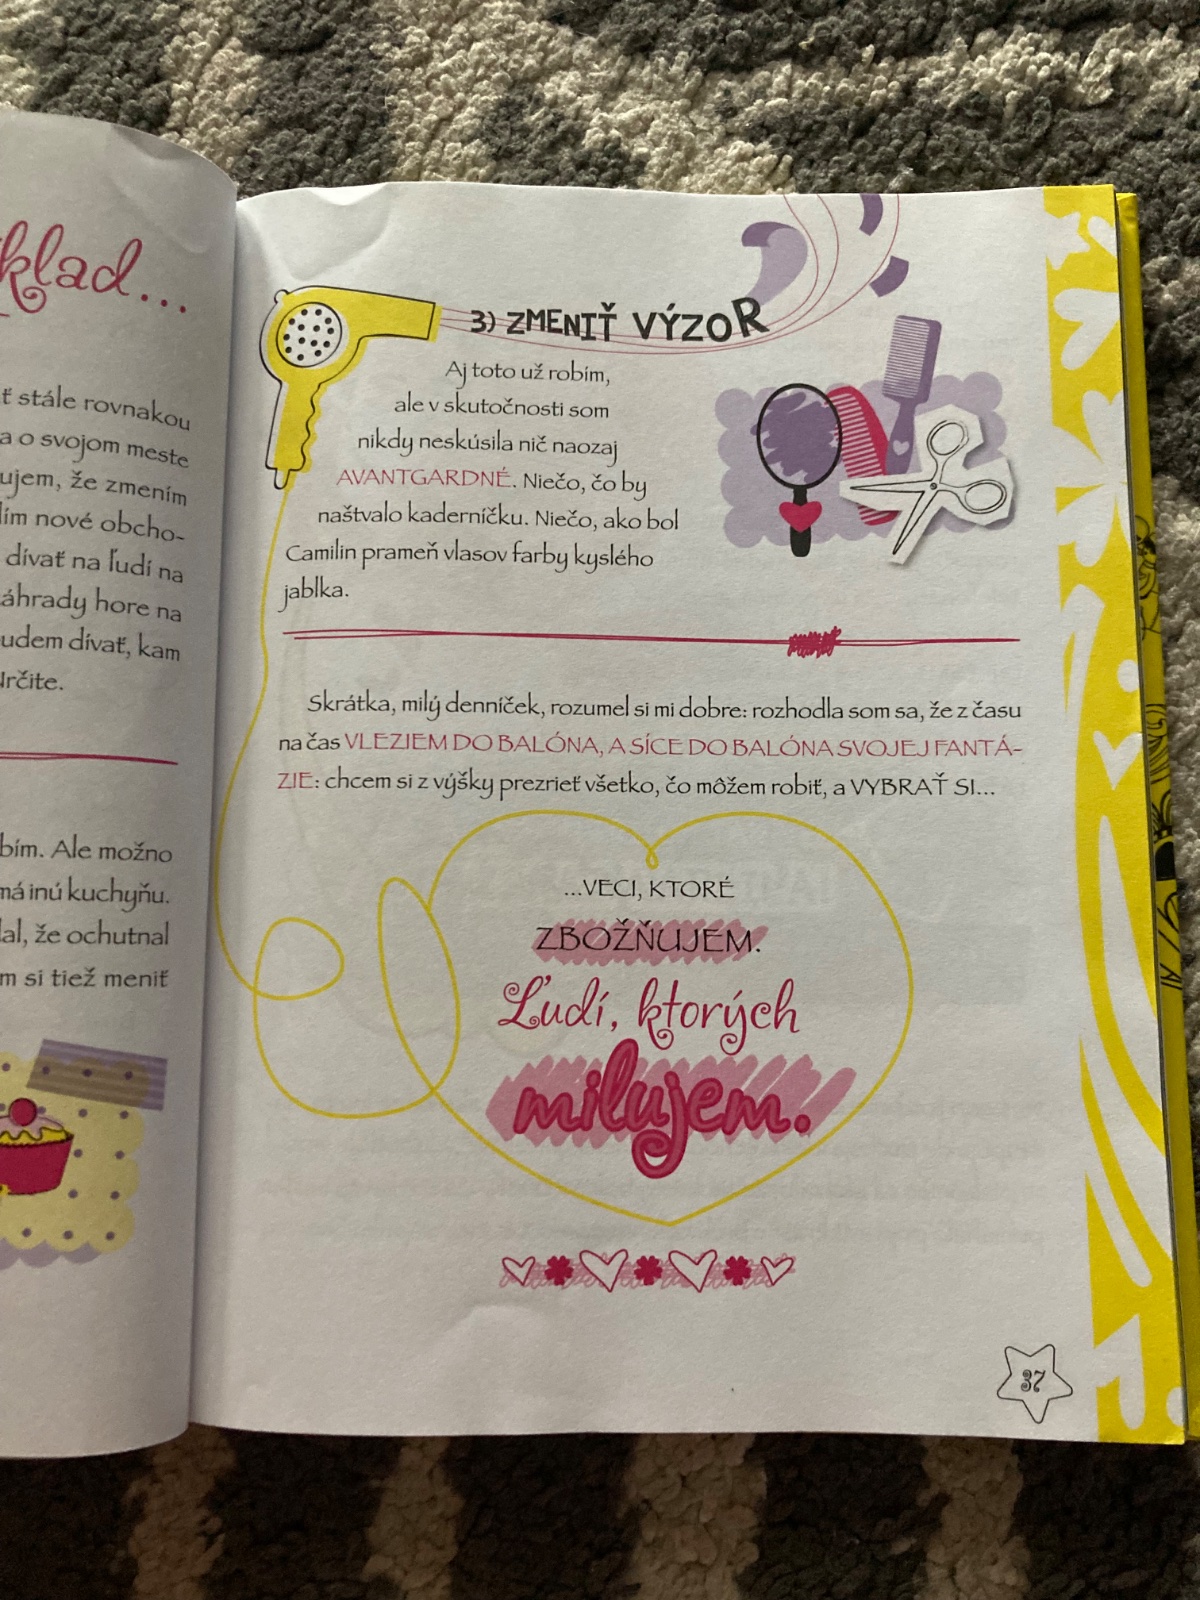 klad...
ť stále rovnakou
a o svojom meste
ujem, že zmením
ím nové obcho-
dívať na ľudí na
áhrady hore na
udem dívať, kam
Určite.
bím. Ale možno
má inú kuchyňu.
al, že ochutnal
m si tiež meniť
3) ZMENIŤ VÝZOR
Aj toto už robím,
ale v skutočnosti som
nikdy neskúsila nič naozaj
AVANTGARDNÉ. Niečo, čo by
naštvalo kaderníčku. Niečo, ako bol
Camilin prameň vlasov farby kyslého
jablka.
Skrátka, milý denníček, rozumel si mi dobre: rozhodla som sa, že z času
na čas VLEZIEM DO BALÓNA, A SÍCE DO BALÓNA SVOJEJ FANTÁ-
ZIE: chcem si z výšky prezrieť všetko, čo môžem robiť, a VYBRAŤ SI...
...VECI, KTORÉ
ZBOŽŇUJEM.
Ľudí, ktorých
milujem.
37